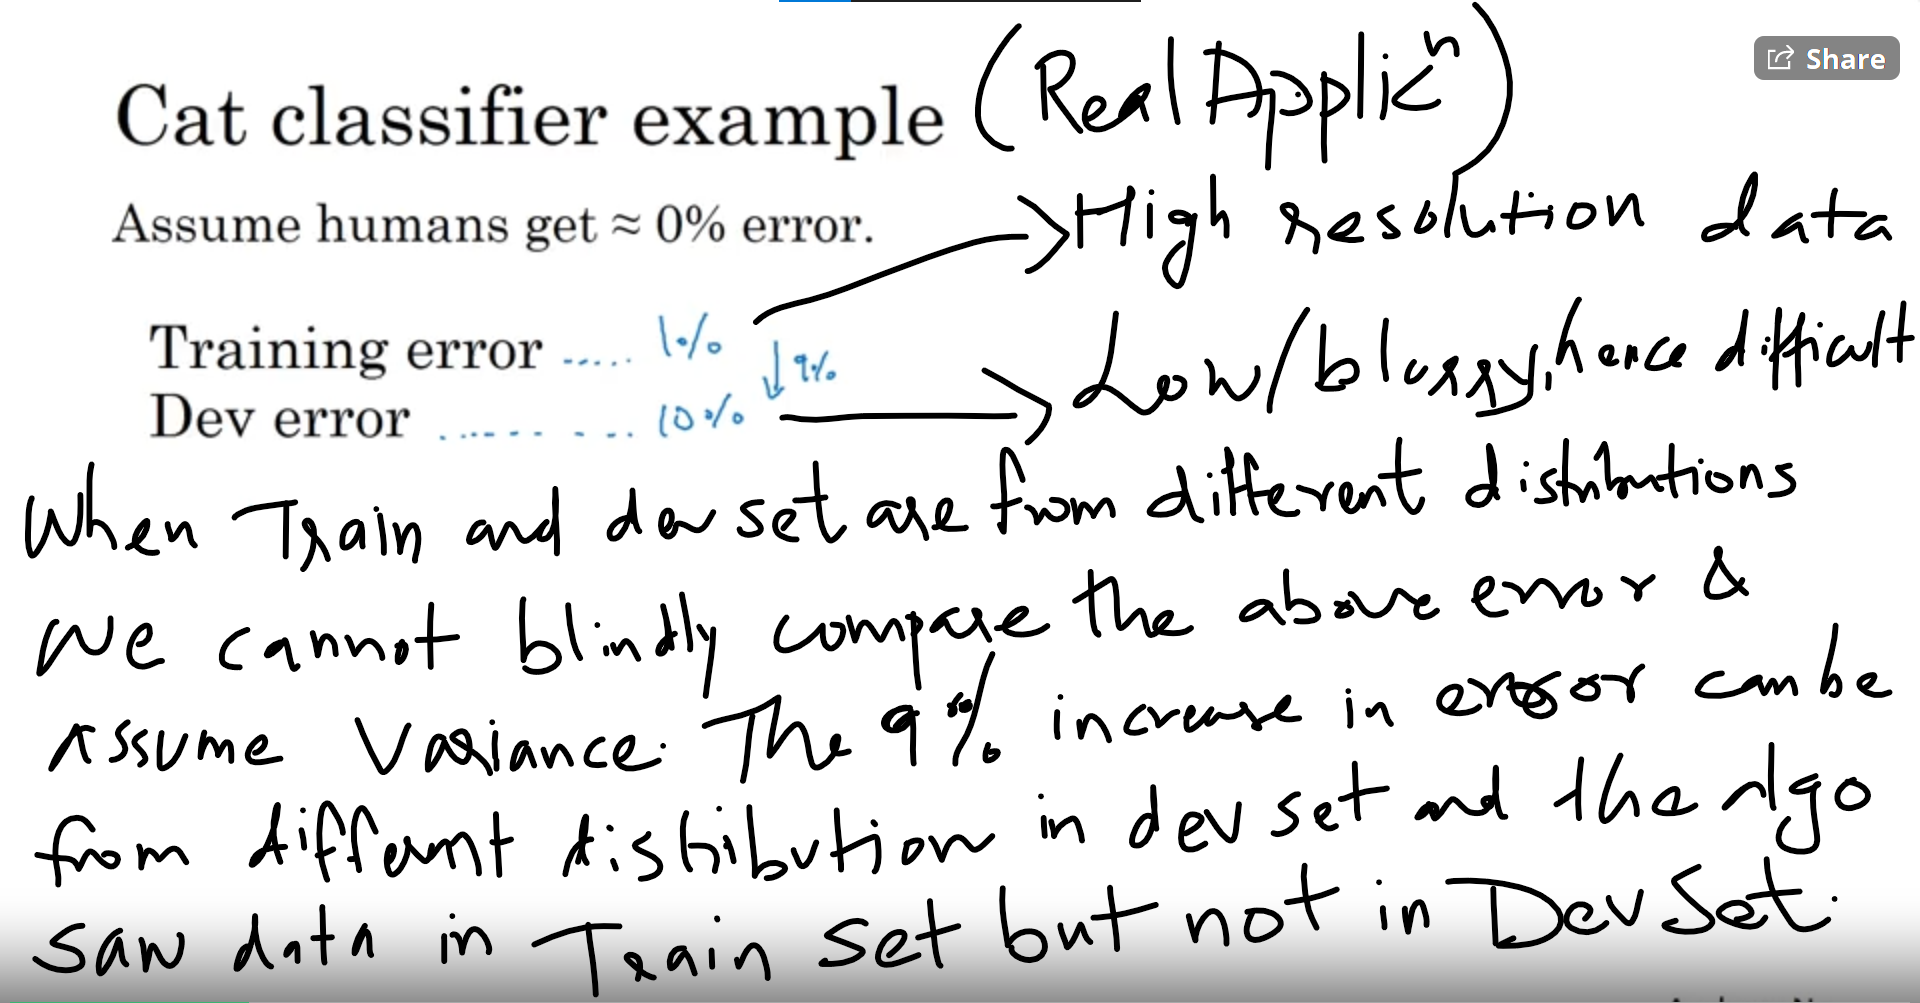 Share
Cat classifier example (Real Applicⁿ)
Assume humans get ≈ 0% error.
High resolution data
Training error ..... 1%
↓ 9%
Dev error ......... 10%
Low/blurry, hence difficult
When Train and dev set are from different distributions
we cannot blindly compare the above error &
Assume Variance. The 9% increase in error can be
from differnt distribution in dev set and the algo
saw data in Train set but not in Dev Set.